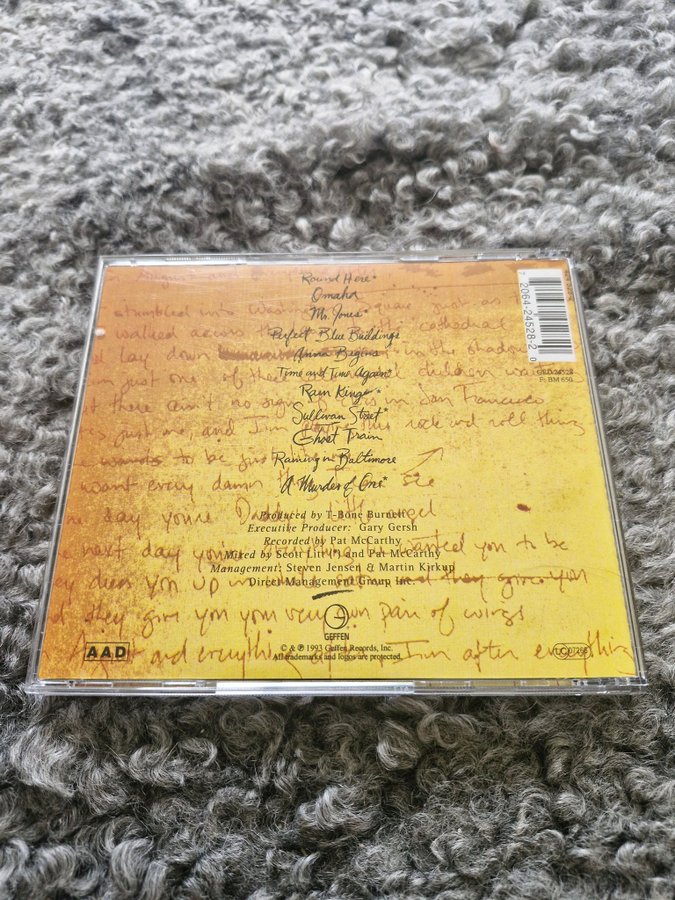 Round Here*
Omaha
Mr. Jones*
Perfect Blue Buildings
Anna Begins
Time and Time Again*
Rain King*
Sullivan Street*
Ghost Train
Raining in Baltimore
A Murder of One*
Produced by T-Bone Burnett
Executive Producer: Gary Gersh
Recorded by Pat McCarthy
Mixed by Scott Litt(*) and Pat McCarthy
Management: Steven Jensen & Martin Kirkup
Direct Management Group Inc.
GEFFEN
© & ℗ 1993 Geffen Records, Inc.
All trademarks and logos are protected.
AAD
7 2064-24528-2 0
GED 24528
F: BM 650
stumbled into Square just as
walked across cathedral
lay down in the shadow
just one of children
there ain't no in San Francisco
just me, and I'm this rock and roll thing
to be just
want every damn see
day you're
next day you're wanted you to be
dress you up in and they give you
they give you your very own pair of wings
and everything I'm after everything